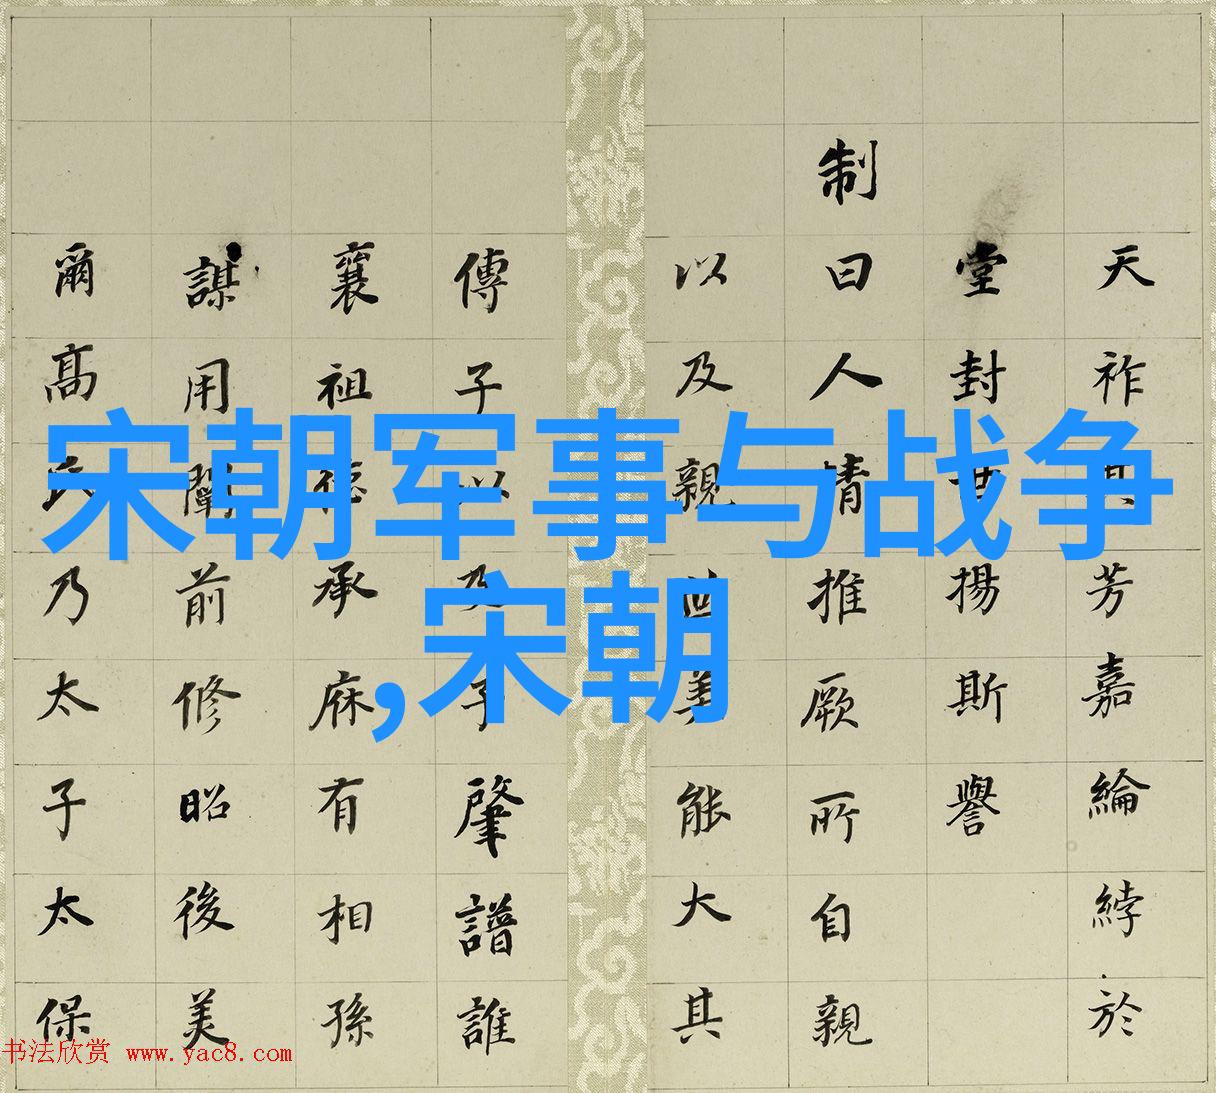 宋朝军事与战争
,宋朝
天祚其芳嘉綸綍於
堂封世揚斯譽
制曰人情推厥所自親
以及親世美能大其
傳子以及子肇譜誰
襄祖德承庥有相孫
謀用闡前修昭後美
爾高氏乃太子太保
书法欣赏 www.yac8.com